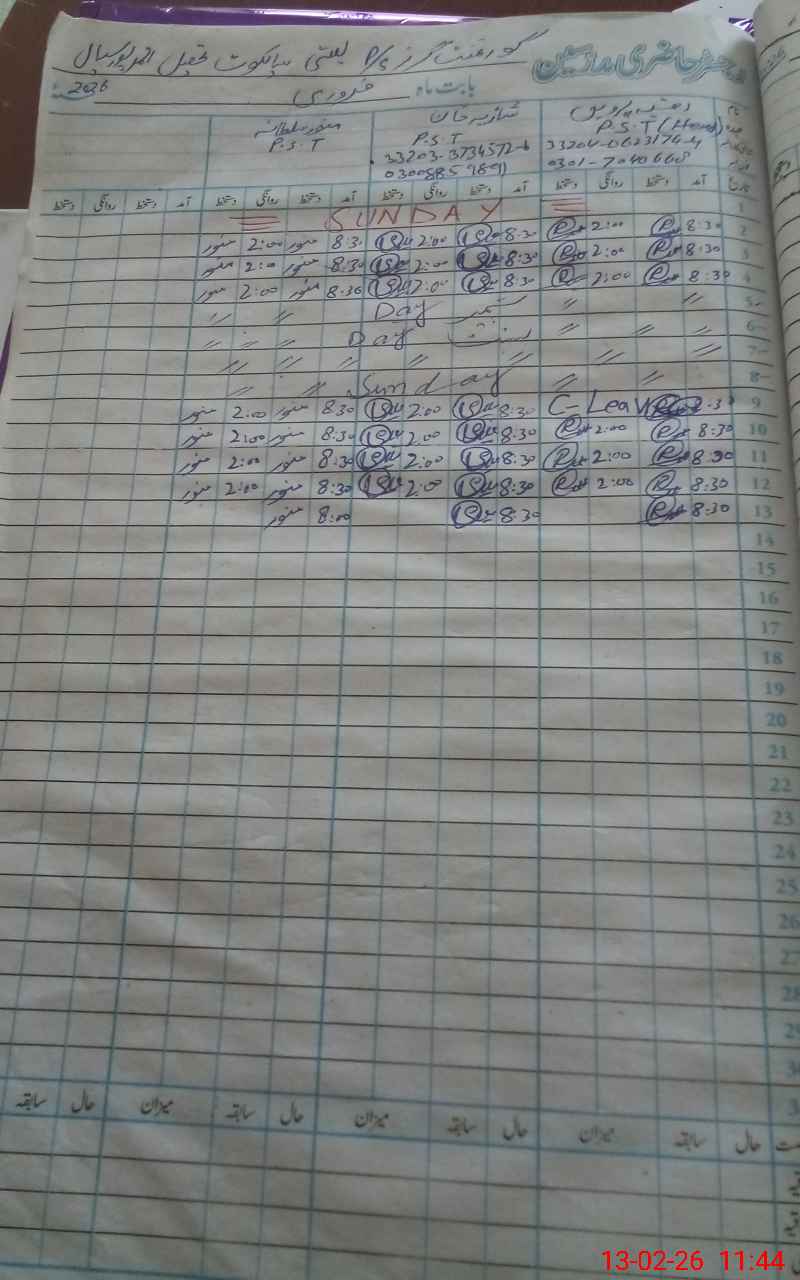 رجسٹر حاضری مدرسین گورنمنٹ گرلز P/S بستی سیالکوٹ تحصیل احمد پور سیال
بابت ماہ فروری 2026
نام شازیہ خان منور سلطانہ
P.S.T (Head) P.S.T P.S.T
33203-3734572-6
0301-7040668
تاریخ آمد دستخط روانگی دستخط آمد دستخط روانگی دستخط آمد دستخط روانگی دستخط آمد دستخط روانگی دستخط
1 SUNDAY
2 8:30 2:00 8:30 2:00 8:30 منور 2:00 منور
3 8:30 2:00 8:30 2:00 8:30 منور 2:00 منور
4 8:30 2:00 8:30 2:00 8:30 منور 2:00 منور
5 〃 〃 کشمیر Day 〃 〃
6 〃 〃 〃 بسنت Day 〃 〃 〃
7 〃 〃 〃 〃 〃 〃 〃 〃
8 〃 〃 Sunday 〃 〃
9 8:30 C-Leave 8:30 2:00 8:30 منور 2:00 منور
10 8:30 2:00 8:30 2:00 8:30 منور 2:00 منور
11 8:30 2:00 8:30 2:00 8:30 منور 2:00 منور
12 8:30 2:00 8:30 2:00 8:30 منور 2:00 منور
13 8:30 8:30 8:00 منور
14
15
16
17
18
19
20
21
22
23
24
25
26
27
28
29
حال سابقہ میزان حال سابقہ میزان حال سابقہ میزان حال سابقہ
13-02-26 11:44